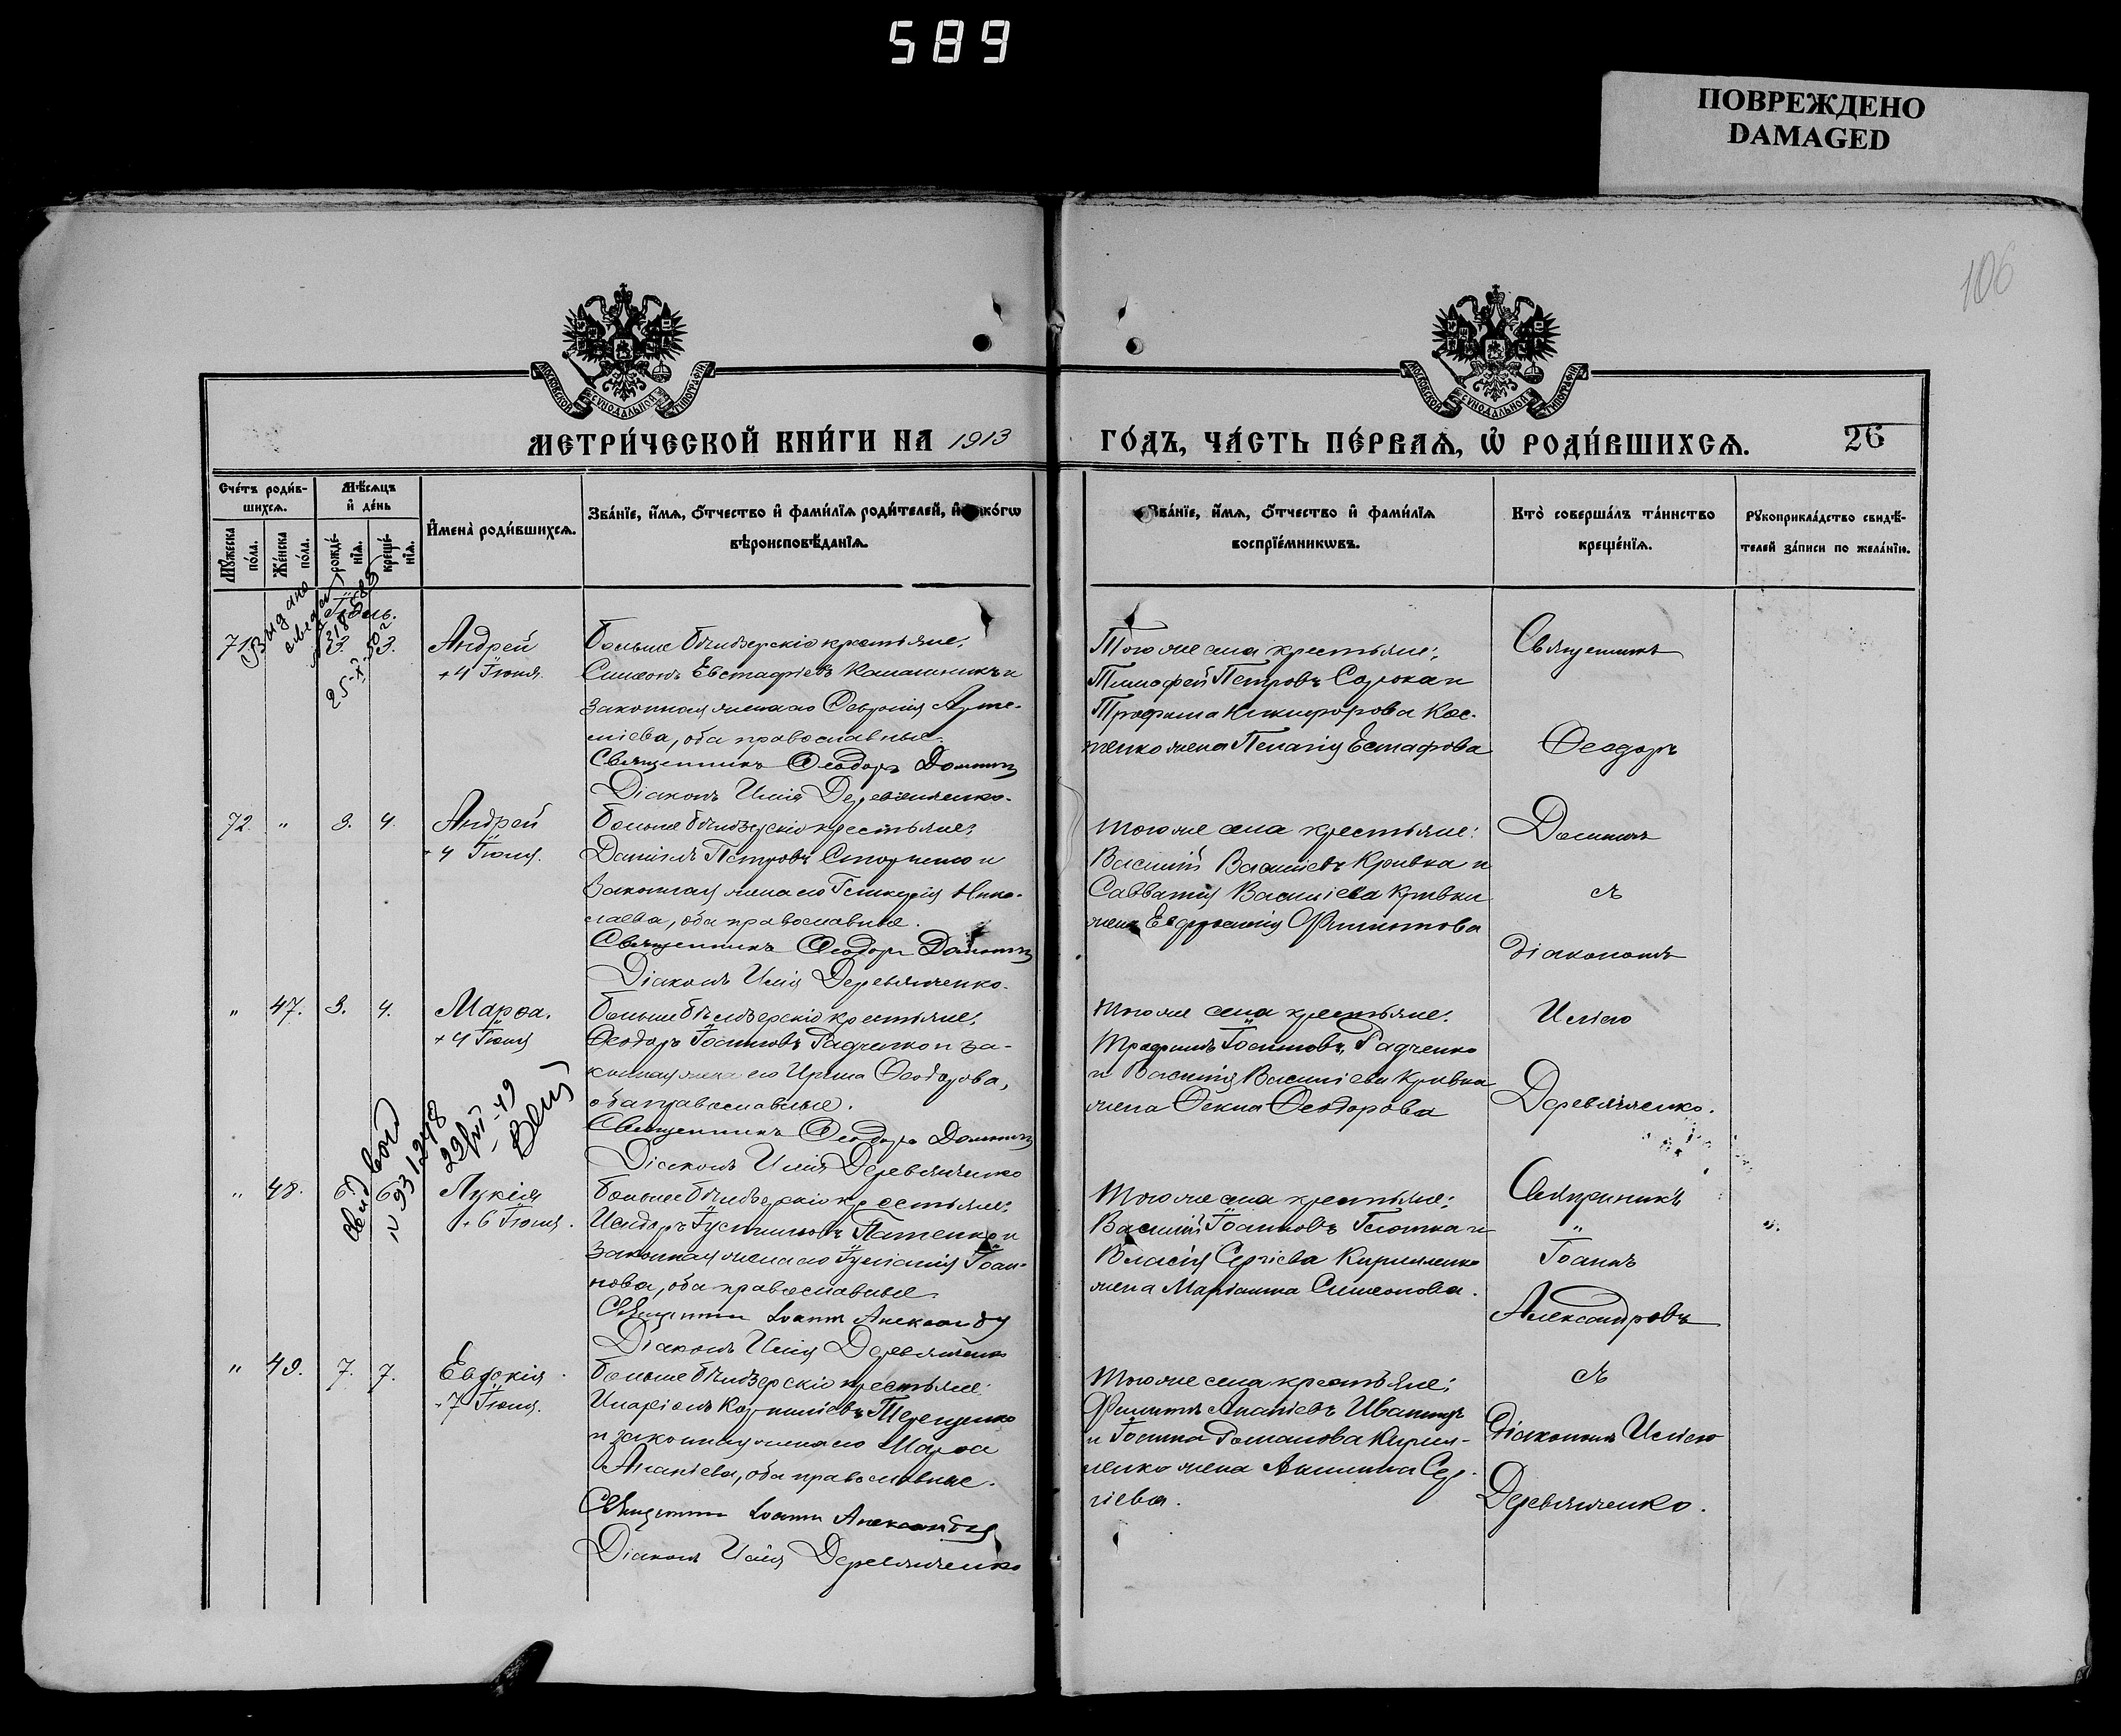 589
ПОВРЕЖДЕНО
DAMAGED
106
МОСКОВСКОЙ СѴНОДАЛЬНОЙ ТИПОГРАФІИ
МОСКОВСКОЙ СѴНОДАЛЬНОЙ ТИПОГРАФІИ
МЕТРИ́ЧЕСКОЙ КНИ́ГИ НА 1913
ГО́ДЪ, ЧА́СТЬ ПЕ́РВАѦ, Ѡ҆ РОДИ́ВШИХСѦ.
26
Сче́тъ роди́в-
шихсѧ.
Мꙋ́жеска по́ла.
Же́нска по́ла.
Мѣ́сѧцъ
и҆ де́нь
рожде́-нїѧ.
креще́-нїѧ.
И҆мена̀ роди́вшихсѧ.
Зва́нїе, и҆́мѧ, ѻ҆́тчество и҆ фами́лїѧ роди́телей, и҆ како́гѡ
вѣроисповѣ́данїѧ.
Зва́нїе, и҆́мѧ, ѻ҆́тчество и҆ фами́лїѧ
воспрїе́мникѡвъ.
Кто̀ соверша́лъ та́инство
креще́нїѧ.
Рꙋкоприкла́дство свидѣ́-
телей за́писи по жела́нїю.
71
3.
3.
Андрей
+4 Іюня.
Больше Бѣлозерскіе крестьяне:
Симеонъ Евстафіевъ и
законная жена его Февронія Арте-
міева, оба православные.
Священникъ Ѳеодоръ
Діаконъ Илія Деревянченко.
Того же села крестьяне:
Тимофей Петровъ Сорока и
Трофима Никифорова Кос-
тенко жена Пелагія Естафова
Священникъ
Ѳеодоръ
72. " 3. 4.
Андрей
+4 Іюня.
Больше Бѣлозерскіе крестьяне:
Даніилъ Петровъ и
законная жена его Гликерія Нико-
лаева, оба православные.
Священникъ Ѳеодоръ
Діаконъ Илія Деревянченко.
того же села крестьяне:
Василій Василіевъ Кривка и
Савватія Василіева Кривки
жена Евфросинія Филиппова
съ
діакономъ
" 47. 3. 4.
Марѳа.
+4 Іюня
Больше Бѣлозерскіе крестьяне:
Ѳеодоръ Іоанновъ Радченко и за-
конная жена его Ирина Ѳеодорова,
оба православные.
Священникъ Ѳеодоръ
Діаконъ Илія Деревянченко
того же села крестьяне:
Трофимъ Іоанновъ Радченко
и Василія Василіева Кривка
жена Ѳекла Ѳеодорова
Иліею
Деревянченко.
931248
" 48. 6 6
Лукія
+6 Іюня.
Больше Бѣлозерскіе крестьяне:
Исидоръ Іустиновъ и
законная жена его Іуліанія Іоан-
нова, оба православные.
Священникъ Іоаннъ Александр
Діаконъ Илія Деревянченко
Того же села крестьяне:
Василій Іоанновъ и
Власія Сергіева Кириленко
жена Маріанна Симеонова.
Священникъ
"
Іоаннъ
Александровъ
" 49. 7. 7.
Евдокія
+7 Іюня.
Больше Бѣлозерскіе крестьяне:
Иларіонъ Корниліевъ Терещенко
и законная жена его Марѳа
Ананіева, оба православные.
Священникъ Іоаннъ Александр
Діаконъ Илія Деревянченко
Того же села крестьяне:
Филиппъ Ананіевъ
и Іоанна Романова Кирил-
ленко жена Акилина Сер-
гіева.
съ
діакономъ Иліею
Деревянченко.